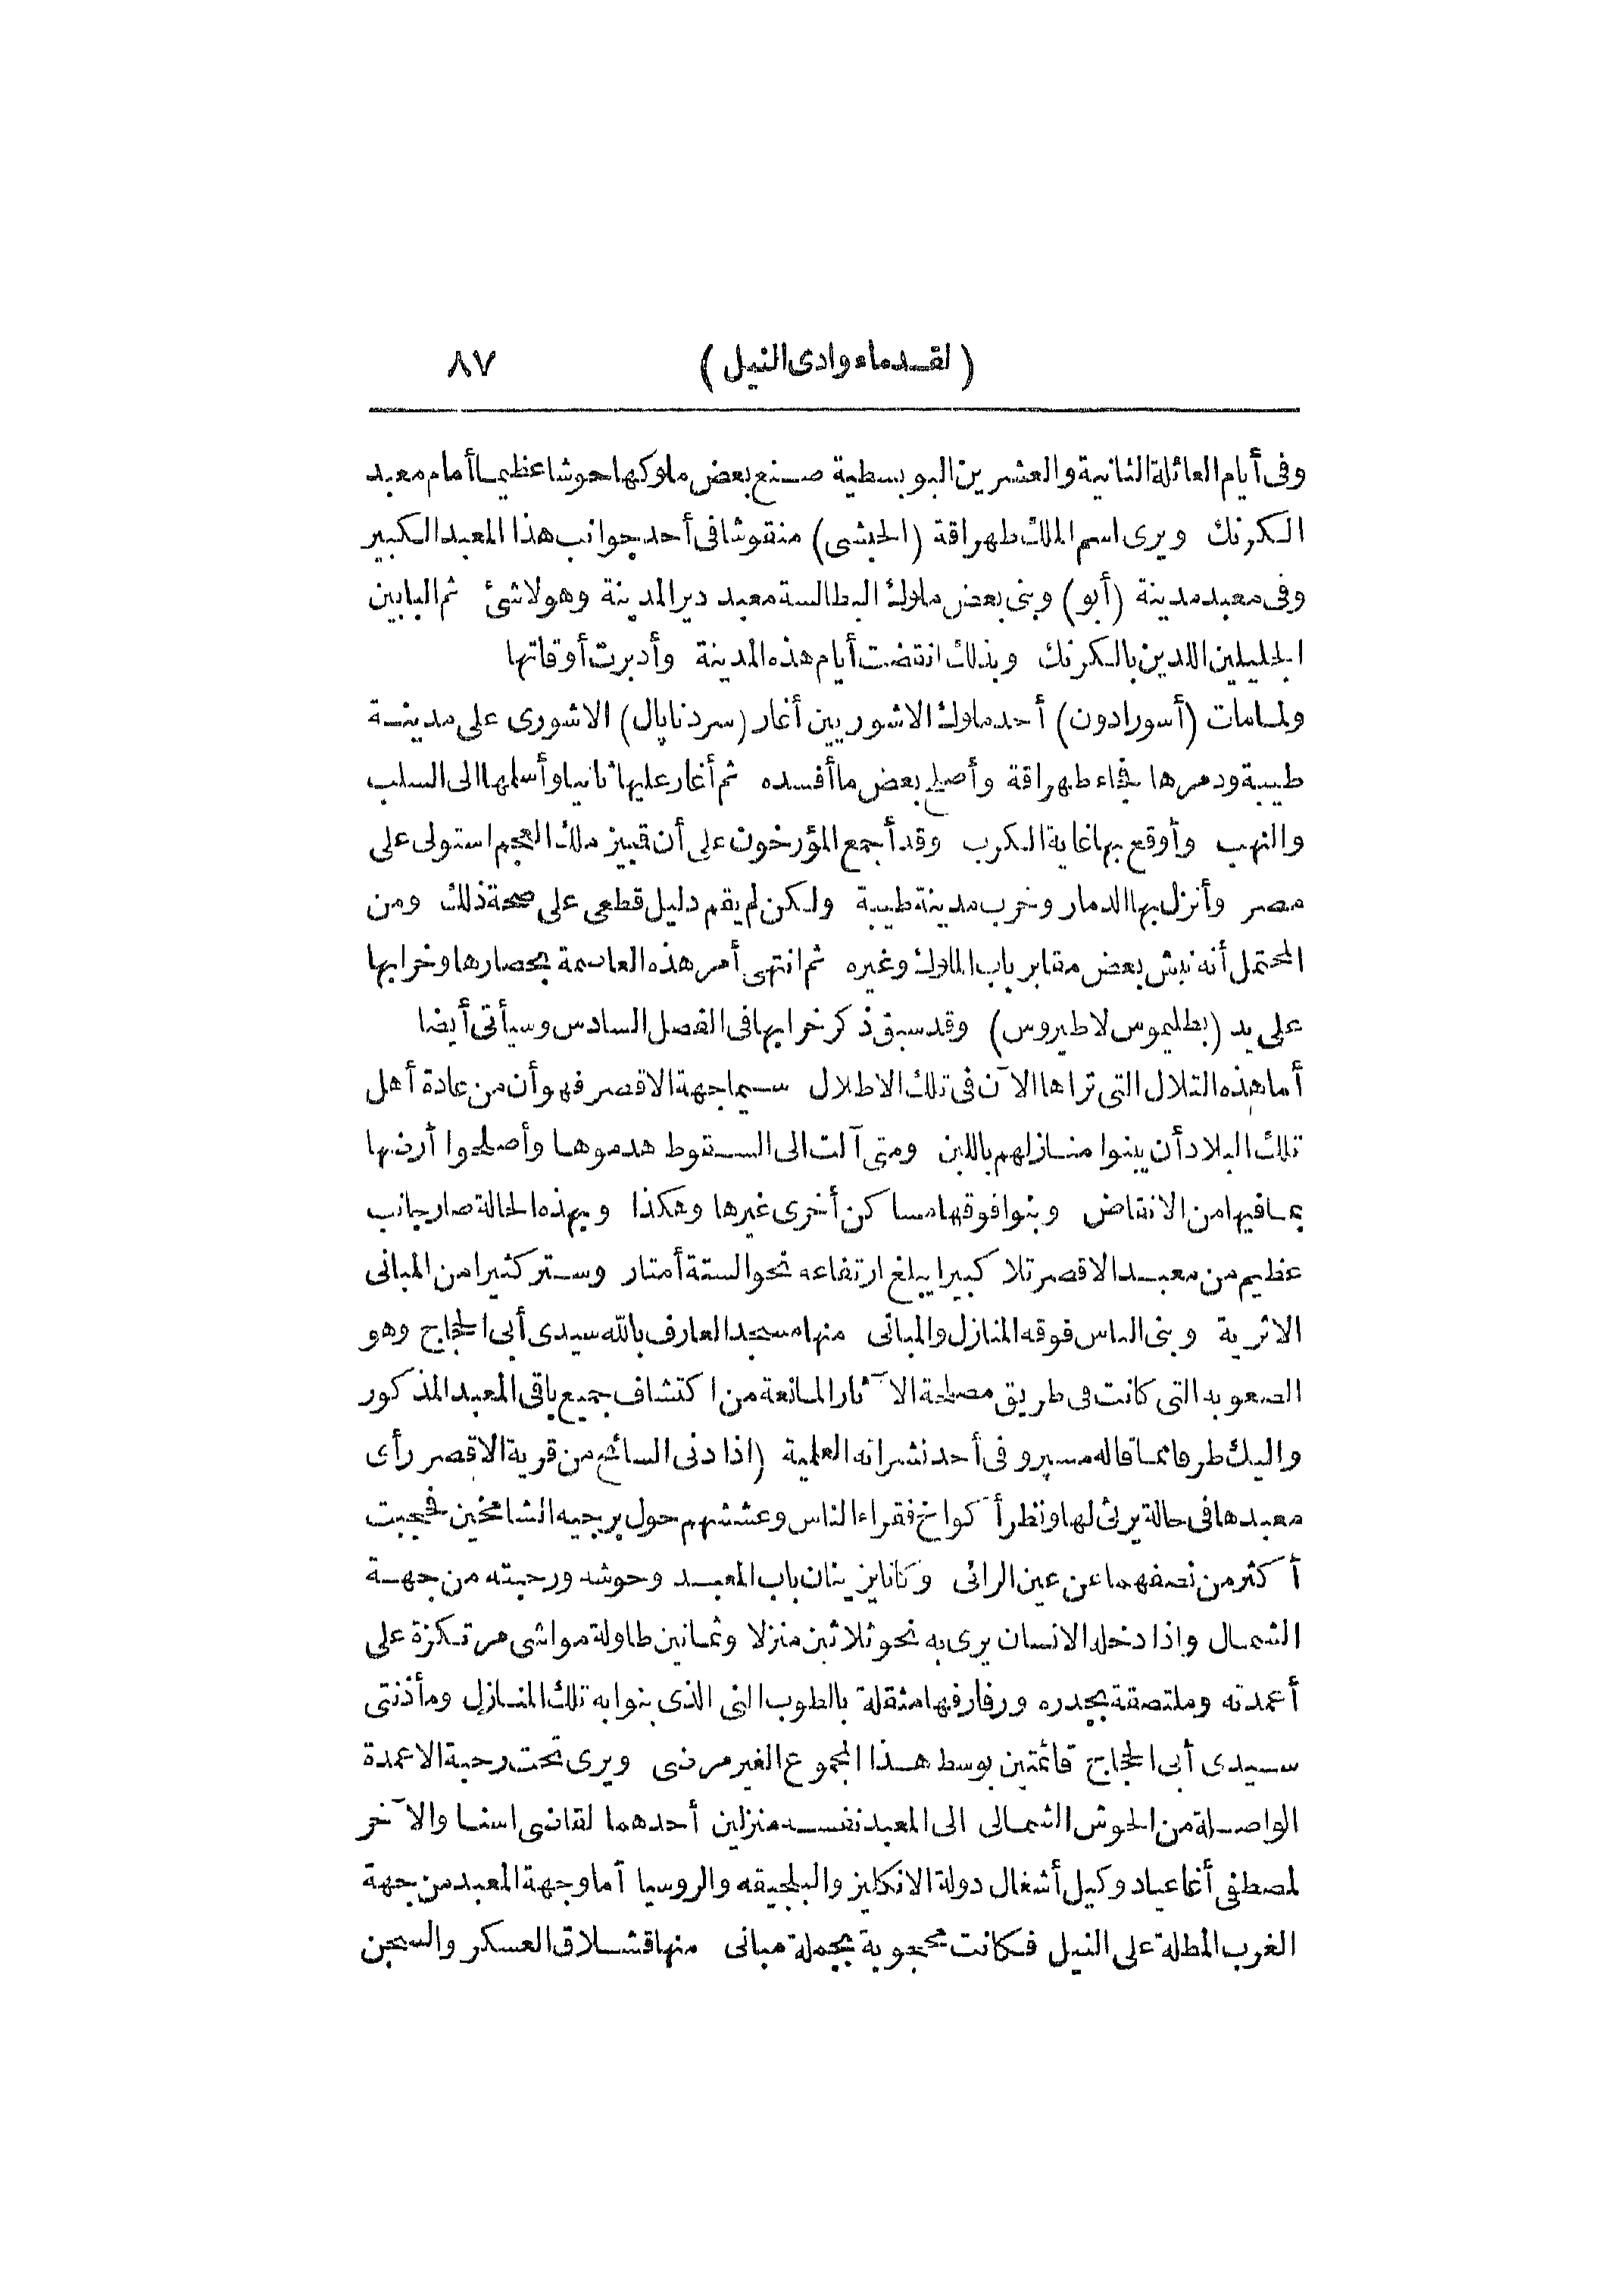 (لقدماء وادى النيل) ٨٧
وفى أيام العائلة الثانية والعشرين البوبسطية صنع بعض ملوكها حوشا عظيما أمام معبد
الكرنك ويرى اسم الملك طهراقة (الحبشى) منقوشا فى أحد جوانب هذا المعبد الكبير
وفى معبد مدينة (أبو) وبنى بعض ملوك البطالسة معبد دير المدينة وهو لا شئ ثم البابين
الجليلين اللدين بالكرنك وبذلك انقضت أيام هذه المدينة وأدبرت أوقاتها
ولما مات (أسورادون) أحد ملوك الاشوريين أغار (سردناپال) الاشورى على مدينة
طيبة ودمرها فجاء طهراقة وأصلح بعض ما أفسده ثم أغار عليها ثانيا وأسلمها الى السلب
والنهب وأوقع بها غاية الكرب وقد أجمع المؤرخون على أن قبيز ملك العجم استولى على
مصر وأنزل بها الدمار وخرب مدينة طيبة ولكن لم يقم دليل قطعى على صحة ذلك ومن
المحتمل أنه نبش بعض مقابر باب الملوك وغيره ثم انتهى أمر هذه العاصمة بحصارها وخرابها
على يد (بطليموس لاطيروس) وقد سبق ذكر خرابها فى الفصل السادس وسيأتى أيضا
أما هذه التلال التى تراها الآن فى تلك الاطلال سيما جهة الاقصر فهو أن من عادة أهل
تلك البلاد أن يبنوا منازلهم باللبن ومتى آلت الى السقوط هدموها وأصلحوا أرضها
بما فيها من الانقاض وبنوا فوقها مساكن أخرى غيرها وهكذا وبهذه الحالة صار جانب
عظيم من معبد الاقصر تلا كبيرا يبلغ ارتفاعه نحو الستة أمتار وستر كثيرا من المبانى
الاثرية وبنى الناس فوقه المنازل والمبانى منها مسجد العارف بالله سيدى أبى الحجاج وهو
الصعوبه التى كانت فى طريق مصلحة الآثار المانعة من اكتشاف جميع باقى المعبد المذكور
واليك طرفا مما قاله مسپرو فى أحد نشراته العلمية (اذا دنى السائح من قرية الاقصر رأى
معبدها فى حالة يرثى لها ونظر أكواخ فقراء الناس وعششهم حول برجيه الشامخين فحجبت
أكثر من نصفهما عن عين الرائى وكانا يزينان باب المعبد وحوشه ورحبته من جهة
الشمال واذا دخله الانسان يرى به نحو ثلاثين منزلا وثمانين طاولة مواشى مرتكزة على
أعمدته وملتصقة بجدره ورفارفها مثقلة بالطوب النى الذى بنوا به تلك المنازل ومأذنتى
سيدى أبى الحجاج قائمتين بوسط هذا المجموع الغير مرضى ويرى تحت رحبة الاعمدة
الواصلة من الحوش الشمالى الى المعبد نفسه منزلين أحدهما لقاضى اسنا والآخر
لمصطفى أغا عياد وكيل أشغال دولة الانكليز والبلجيقه والروسيا أما وجهة المعبد من جهة
الغرب المطلة على النيل فكانت محجوبة بجملة مبانى منها قشلاق العسكر والسجن